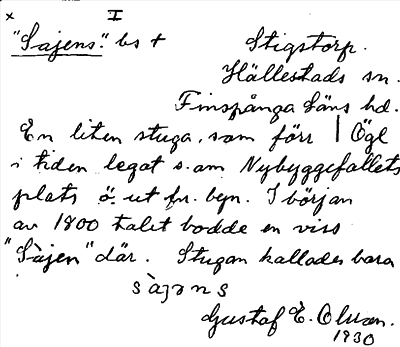 × I
"Sajens". bs +
Stigstorp.
Hällestads sn.
Finspånga läns hd.
Ögl
En liten stuga, som förr
i tiden legat s. om Nybyggefallets
plats ö. ut fr. byn. I början
av 1800 talet bodde en viss
"Sàjen" där. Stugan kallades bara
sàjəns
Gustaf E. Olsson.
1930